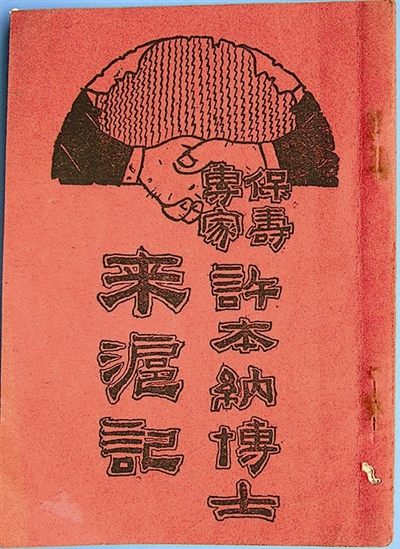 保壽
專家
許本納博士
来滬記